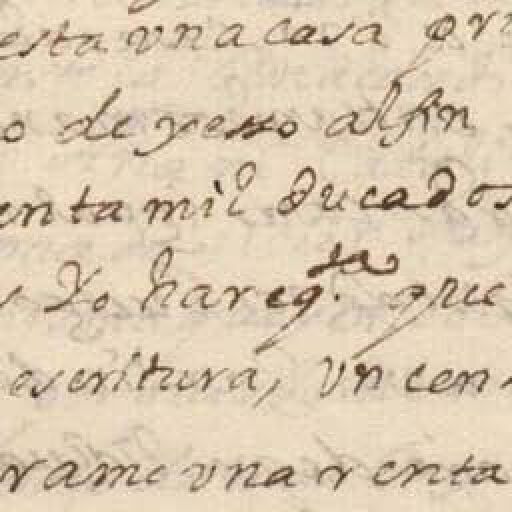 esta vna casa
o de yesso al fin
enta mil ducados
Yo hare q. que
escritura, vn cen
rame vna renta